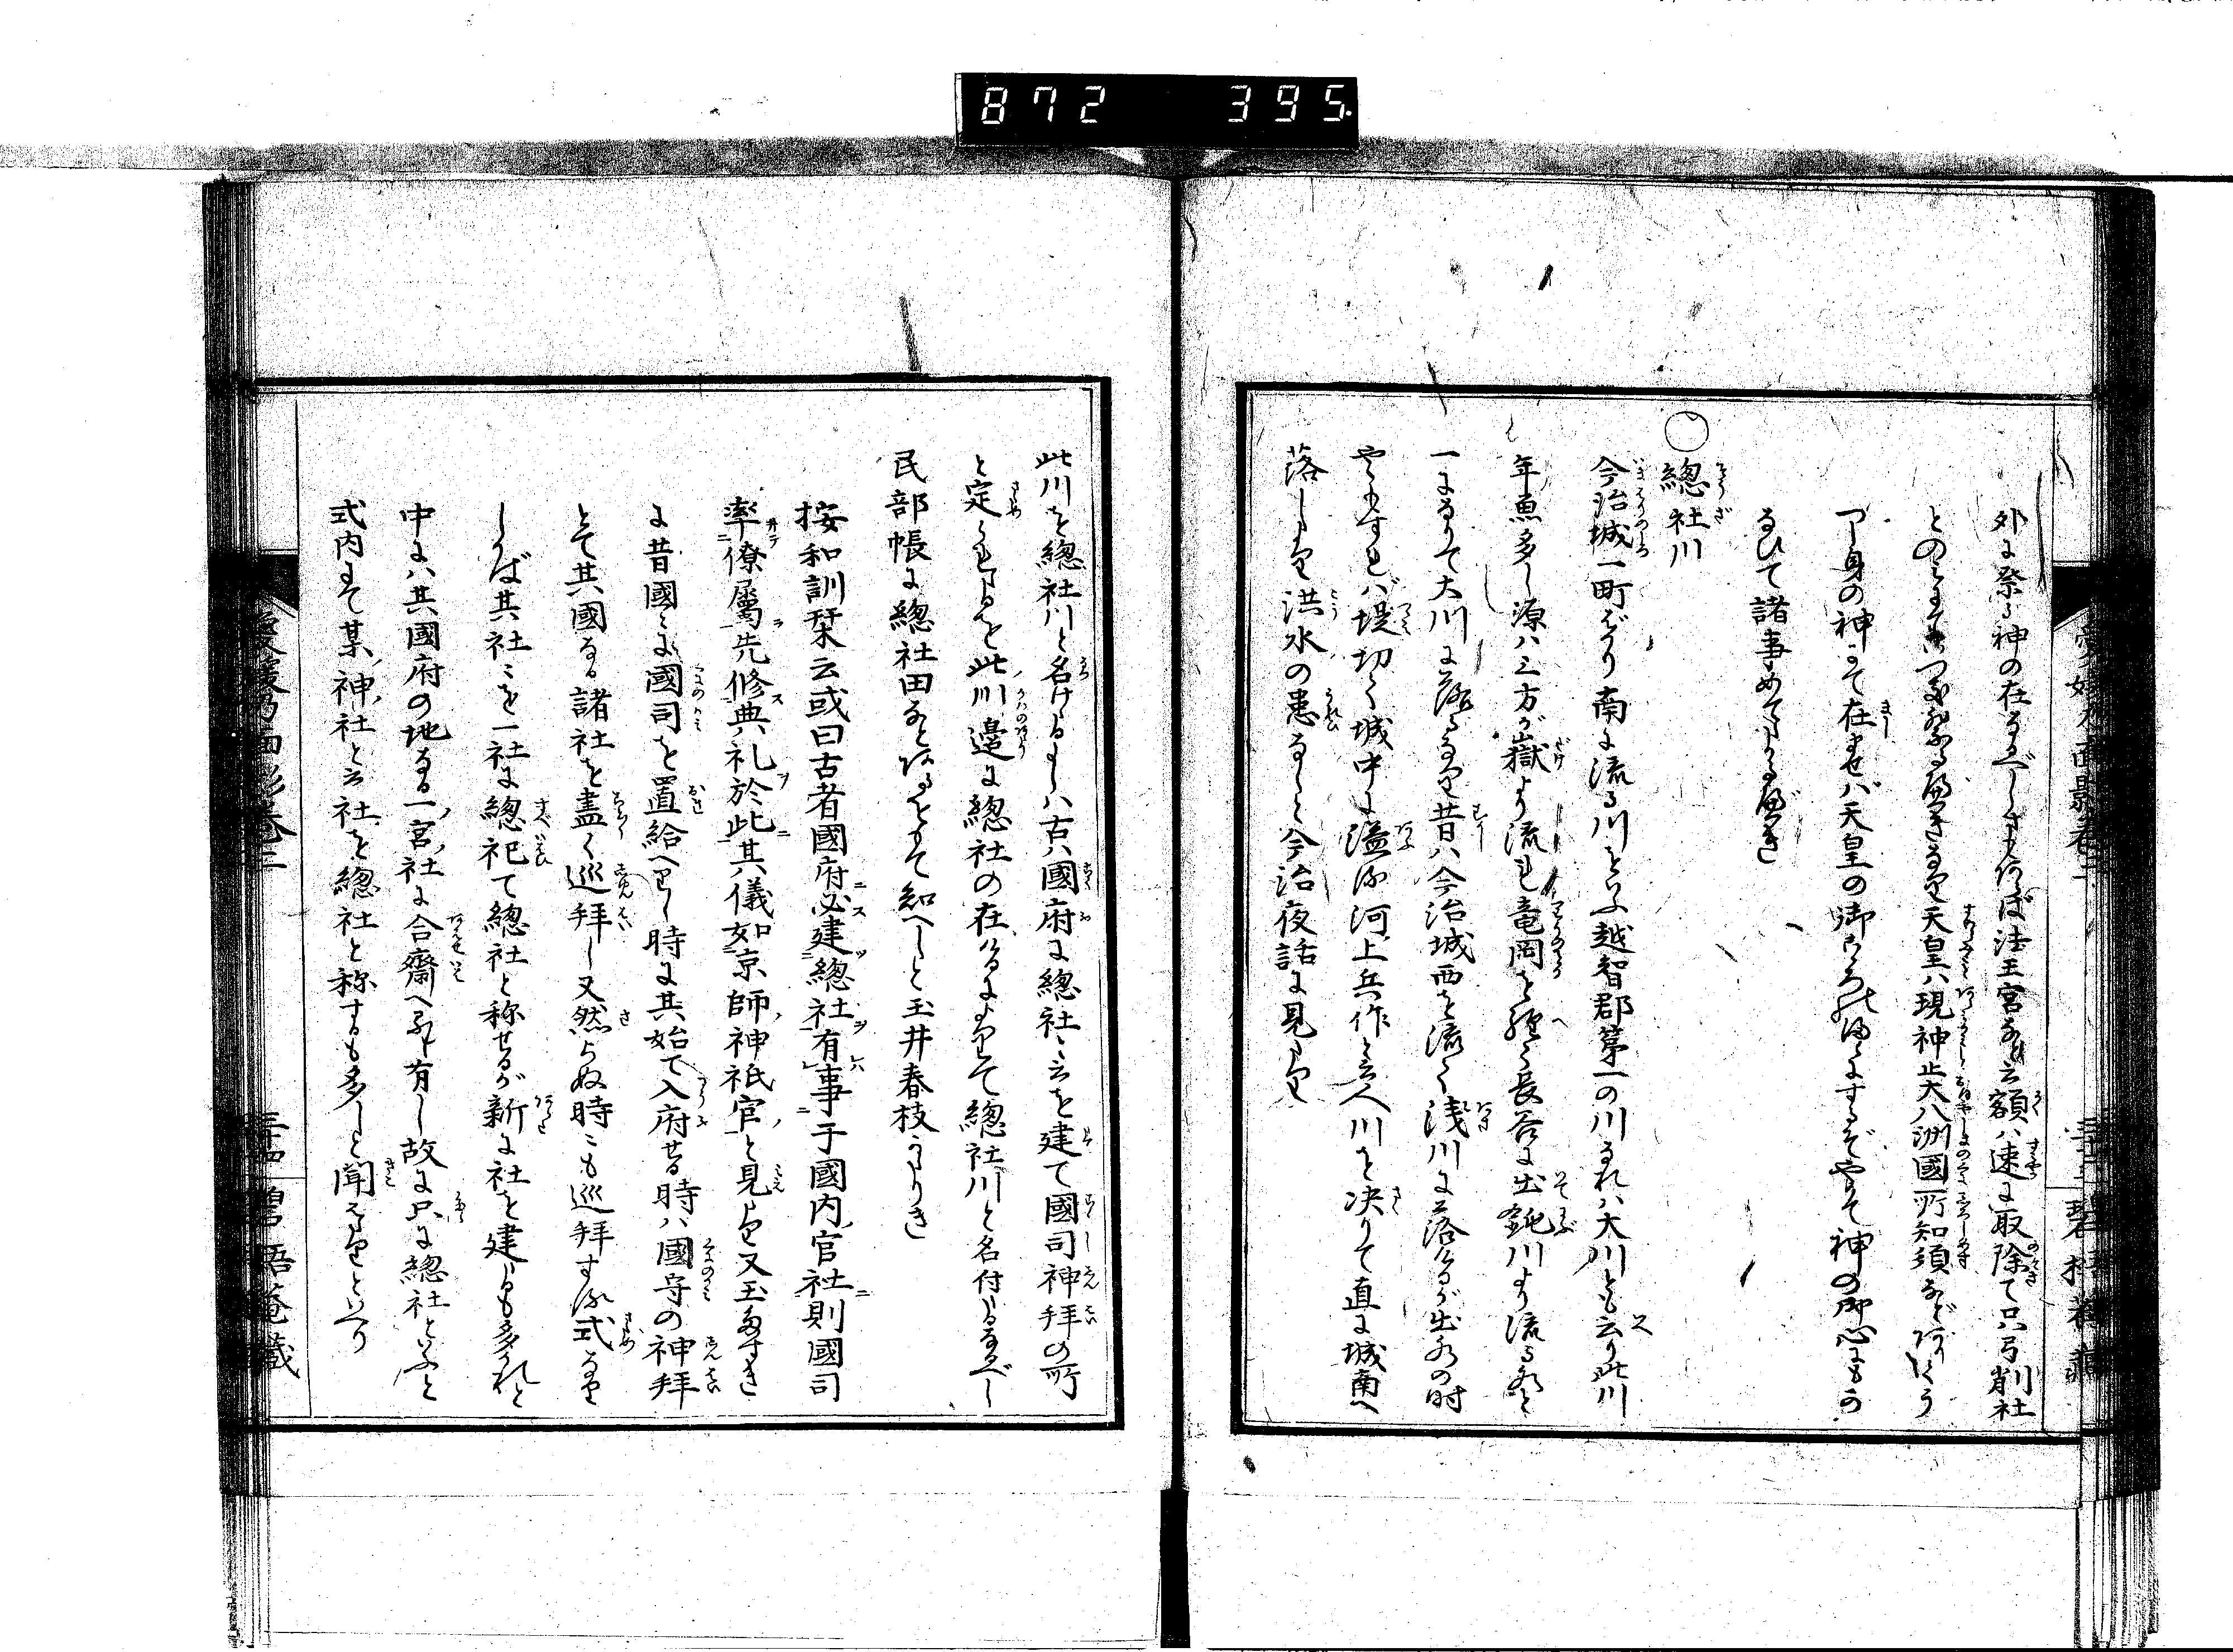 872 395.
外に祭る神の在るべしさあらば法王宮など云額は速に取除て只弓削社
とのみ
天皇は現神止大八洲國所知須など
身の神にて在ませば天皇の御
神の御心にもか
るひて諸事めでたかるべき
○總社川
今治城一町ばかり南に流る川をいふ越智郡第一の川なれば大川とも云り此川
年魚多し源は三方が嶽より流れ竜岡を經て長谷に出鈍川より流る水と
一になりて大川に落るなり昔は今治城西を流て浅川に落けるが出水の時
やゝもすれば堤切て城中に溢る河上兵作と云人川を决りて直に城南へ
落しより洪水の患なしと今治夜話に見えたり
此川を總社川と名けるよしは古へ國府に總社と云を建て國司神拜の所
と定られたるを此川邉に總社の在けるによりて總社川と名付けるなるべし
民部帳に總社田なとあるをもて知へしと玉井春枝いへりき
按和訓栞云或曰古者國府必建總社有事于國内官社則國司
率僚屬先修典礼於此其儀如京師神祇官と見えたり又玉たすき
に昔國々に國司を置給へりし時に其始て入府せる時は國守の神拜
とて其國なる諸社を盡く巡拜し又然らぬ時々も巡拜する式なり
しかば其社々を一社に總祀て總社と称せるが新に社を建たるも多かれと
中には其國府の地なる一宮社に合齋へるも有し故に只に總社といふと
式内にて某神社と云社を總社と称するも多しと聞えたりといへり
愛媛乃面影巻二
碧梧菴藏